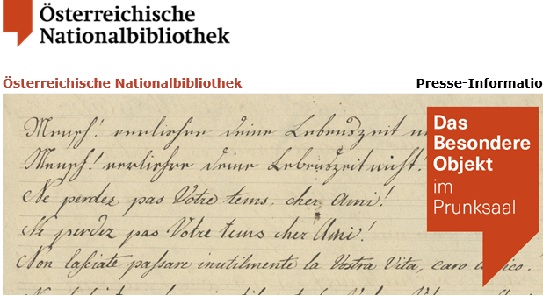 Österreichische
Nationalbibliothek
Österreichische Nationalbibliothek
Presse-Informatio
Das
Besondere
Objekt
im
Prunksaal
Mensch! verliehre deine Lebenszeit
Mensch! verliehre deine Lebenszeit nicht!
Ne perdez pas Votre tems, cher Ami!
Ne perdez pas Votre tems cher Ami!
Non lasciate passare inutilmente la Vostra Vita, caro